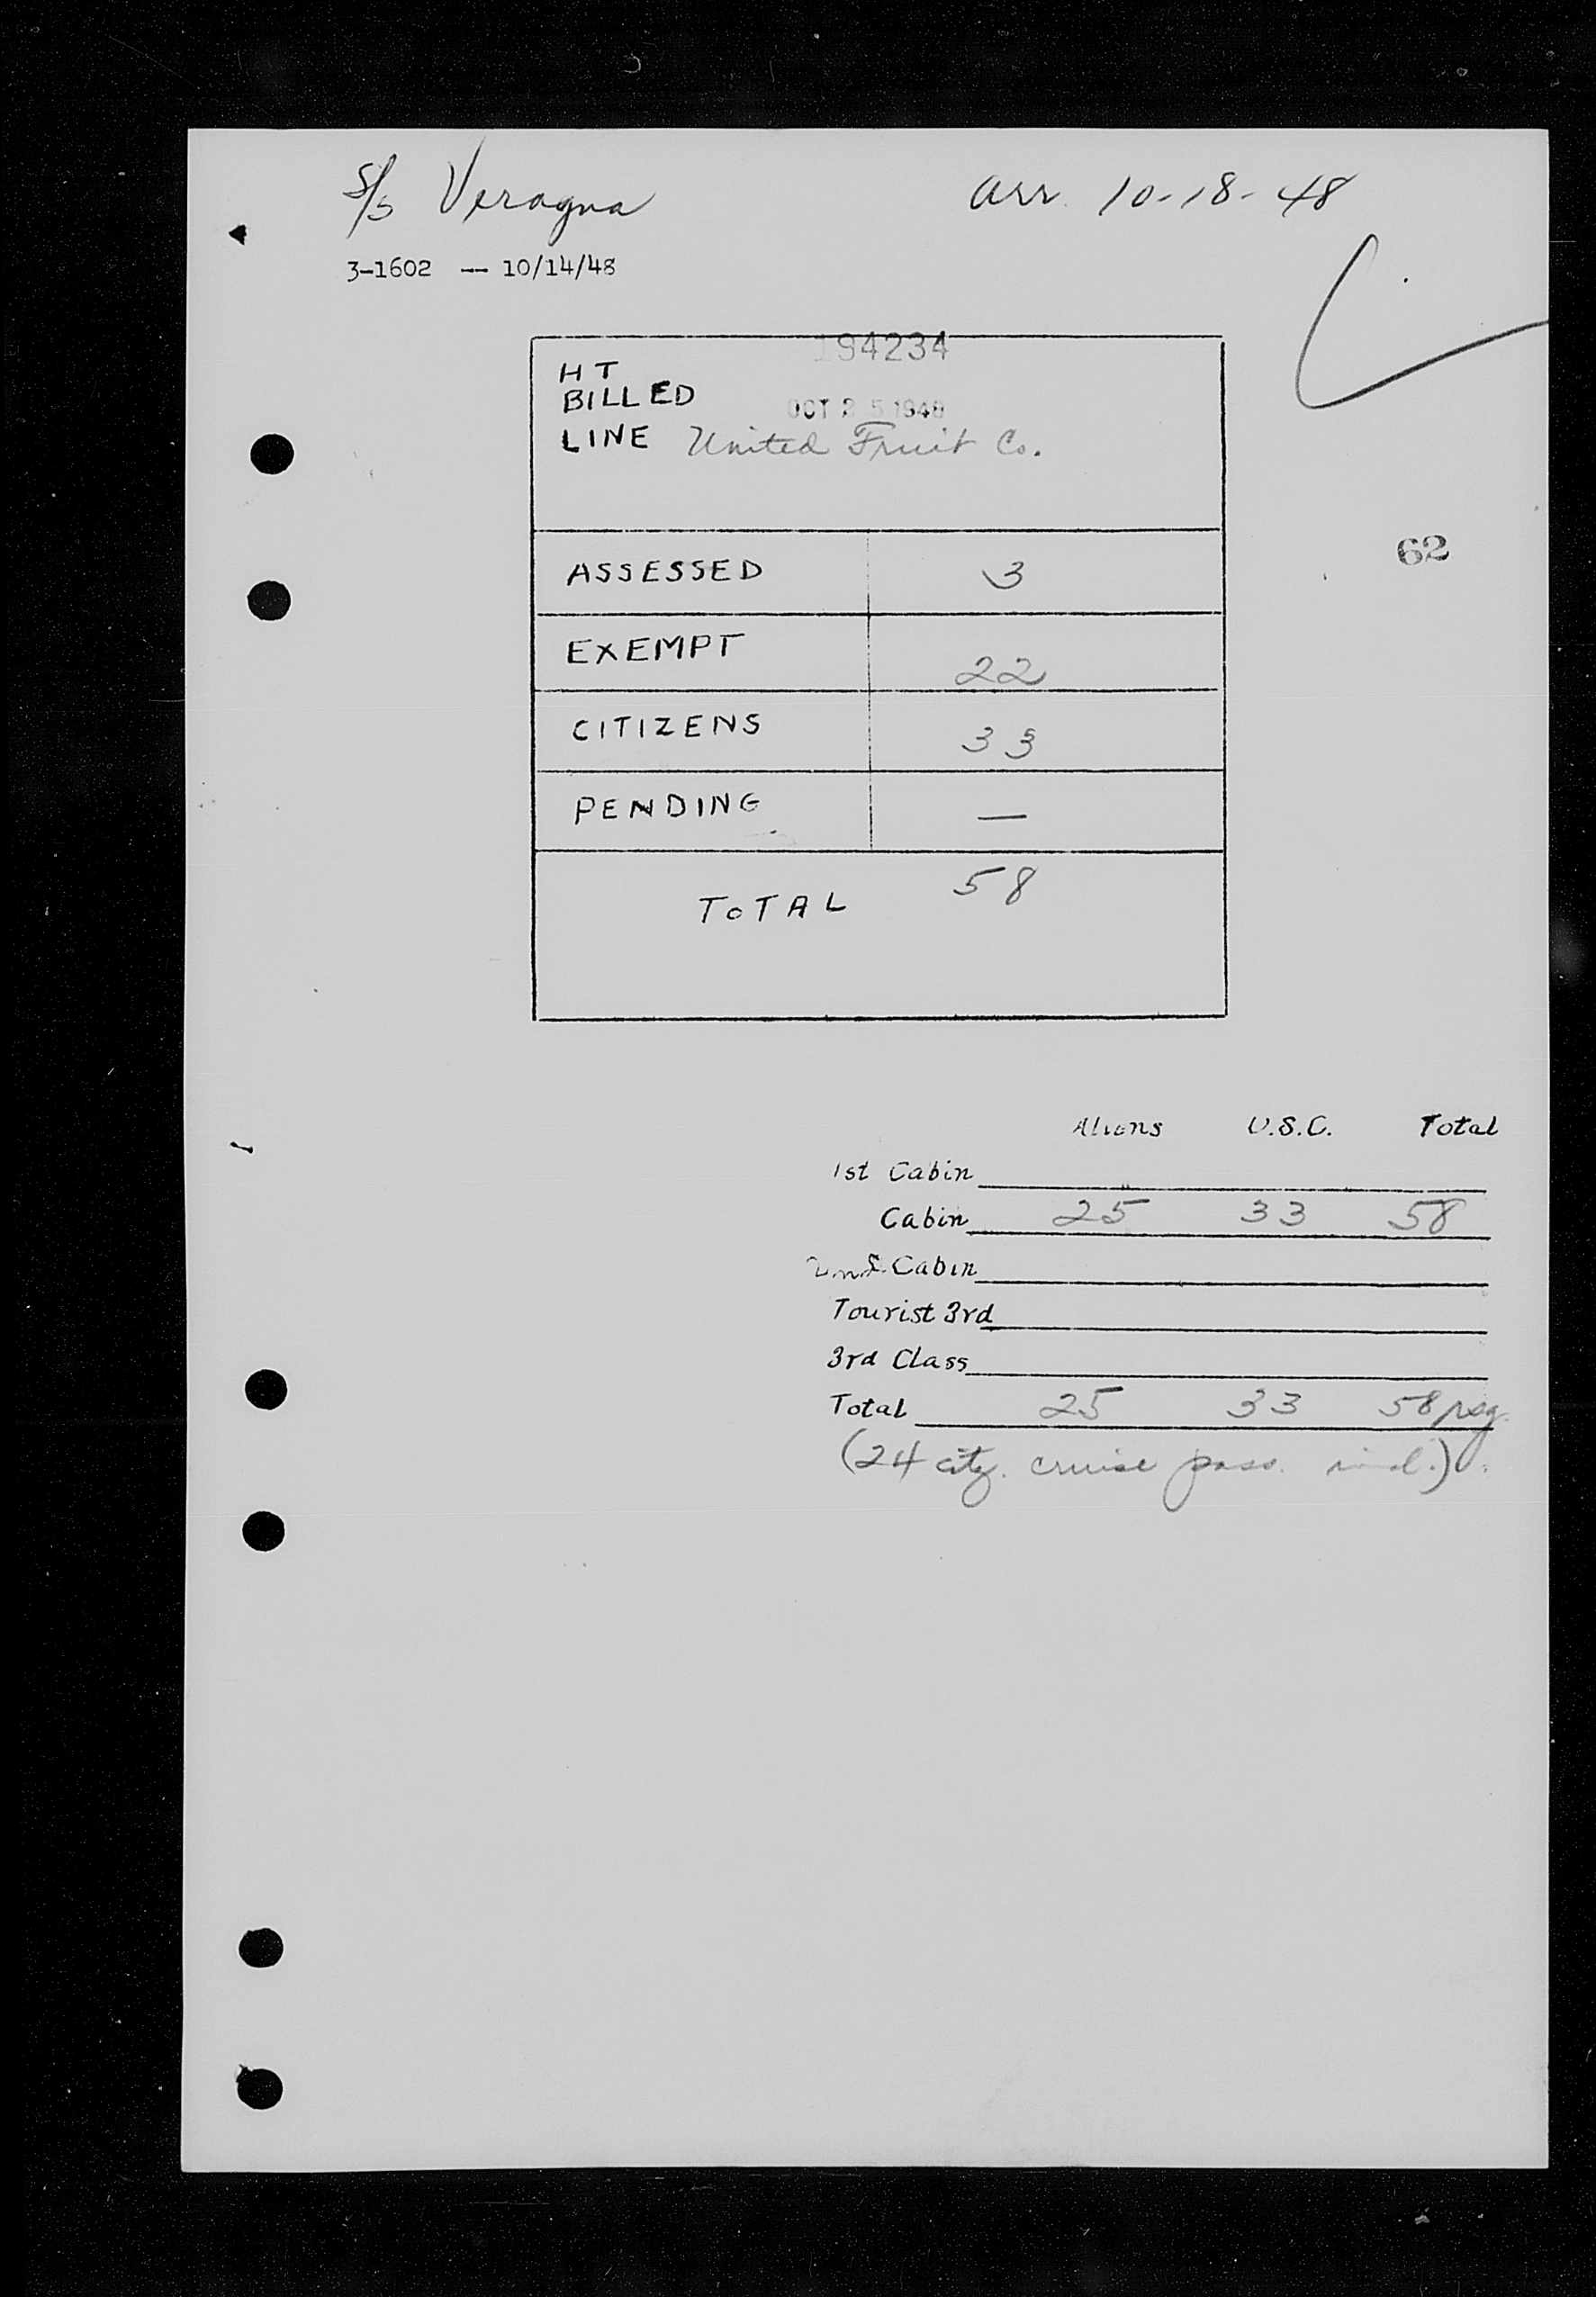 S/S Veragua arr. 10-18-48
3-1602 — 10/14/48
194234
HT
BILLED
OCT 25 1948
LINE United Fruit Co.
62
ASSESSED 3
EXEMPT 22
CITIZENS 33
PENDING —
TOTAL 58
Aliens U.S.C. Total
1st Cabin
Cabin 25 33 58
2nd Cabin
Tourist 3rd
3rd Class
Total 25 33 58 psg.
(24 citz. cruise pass. incl.)